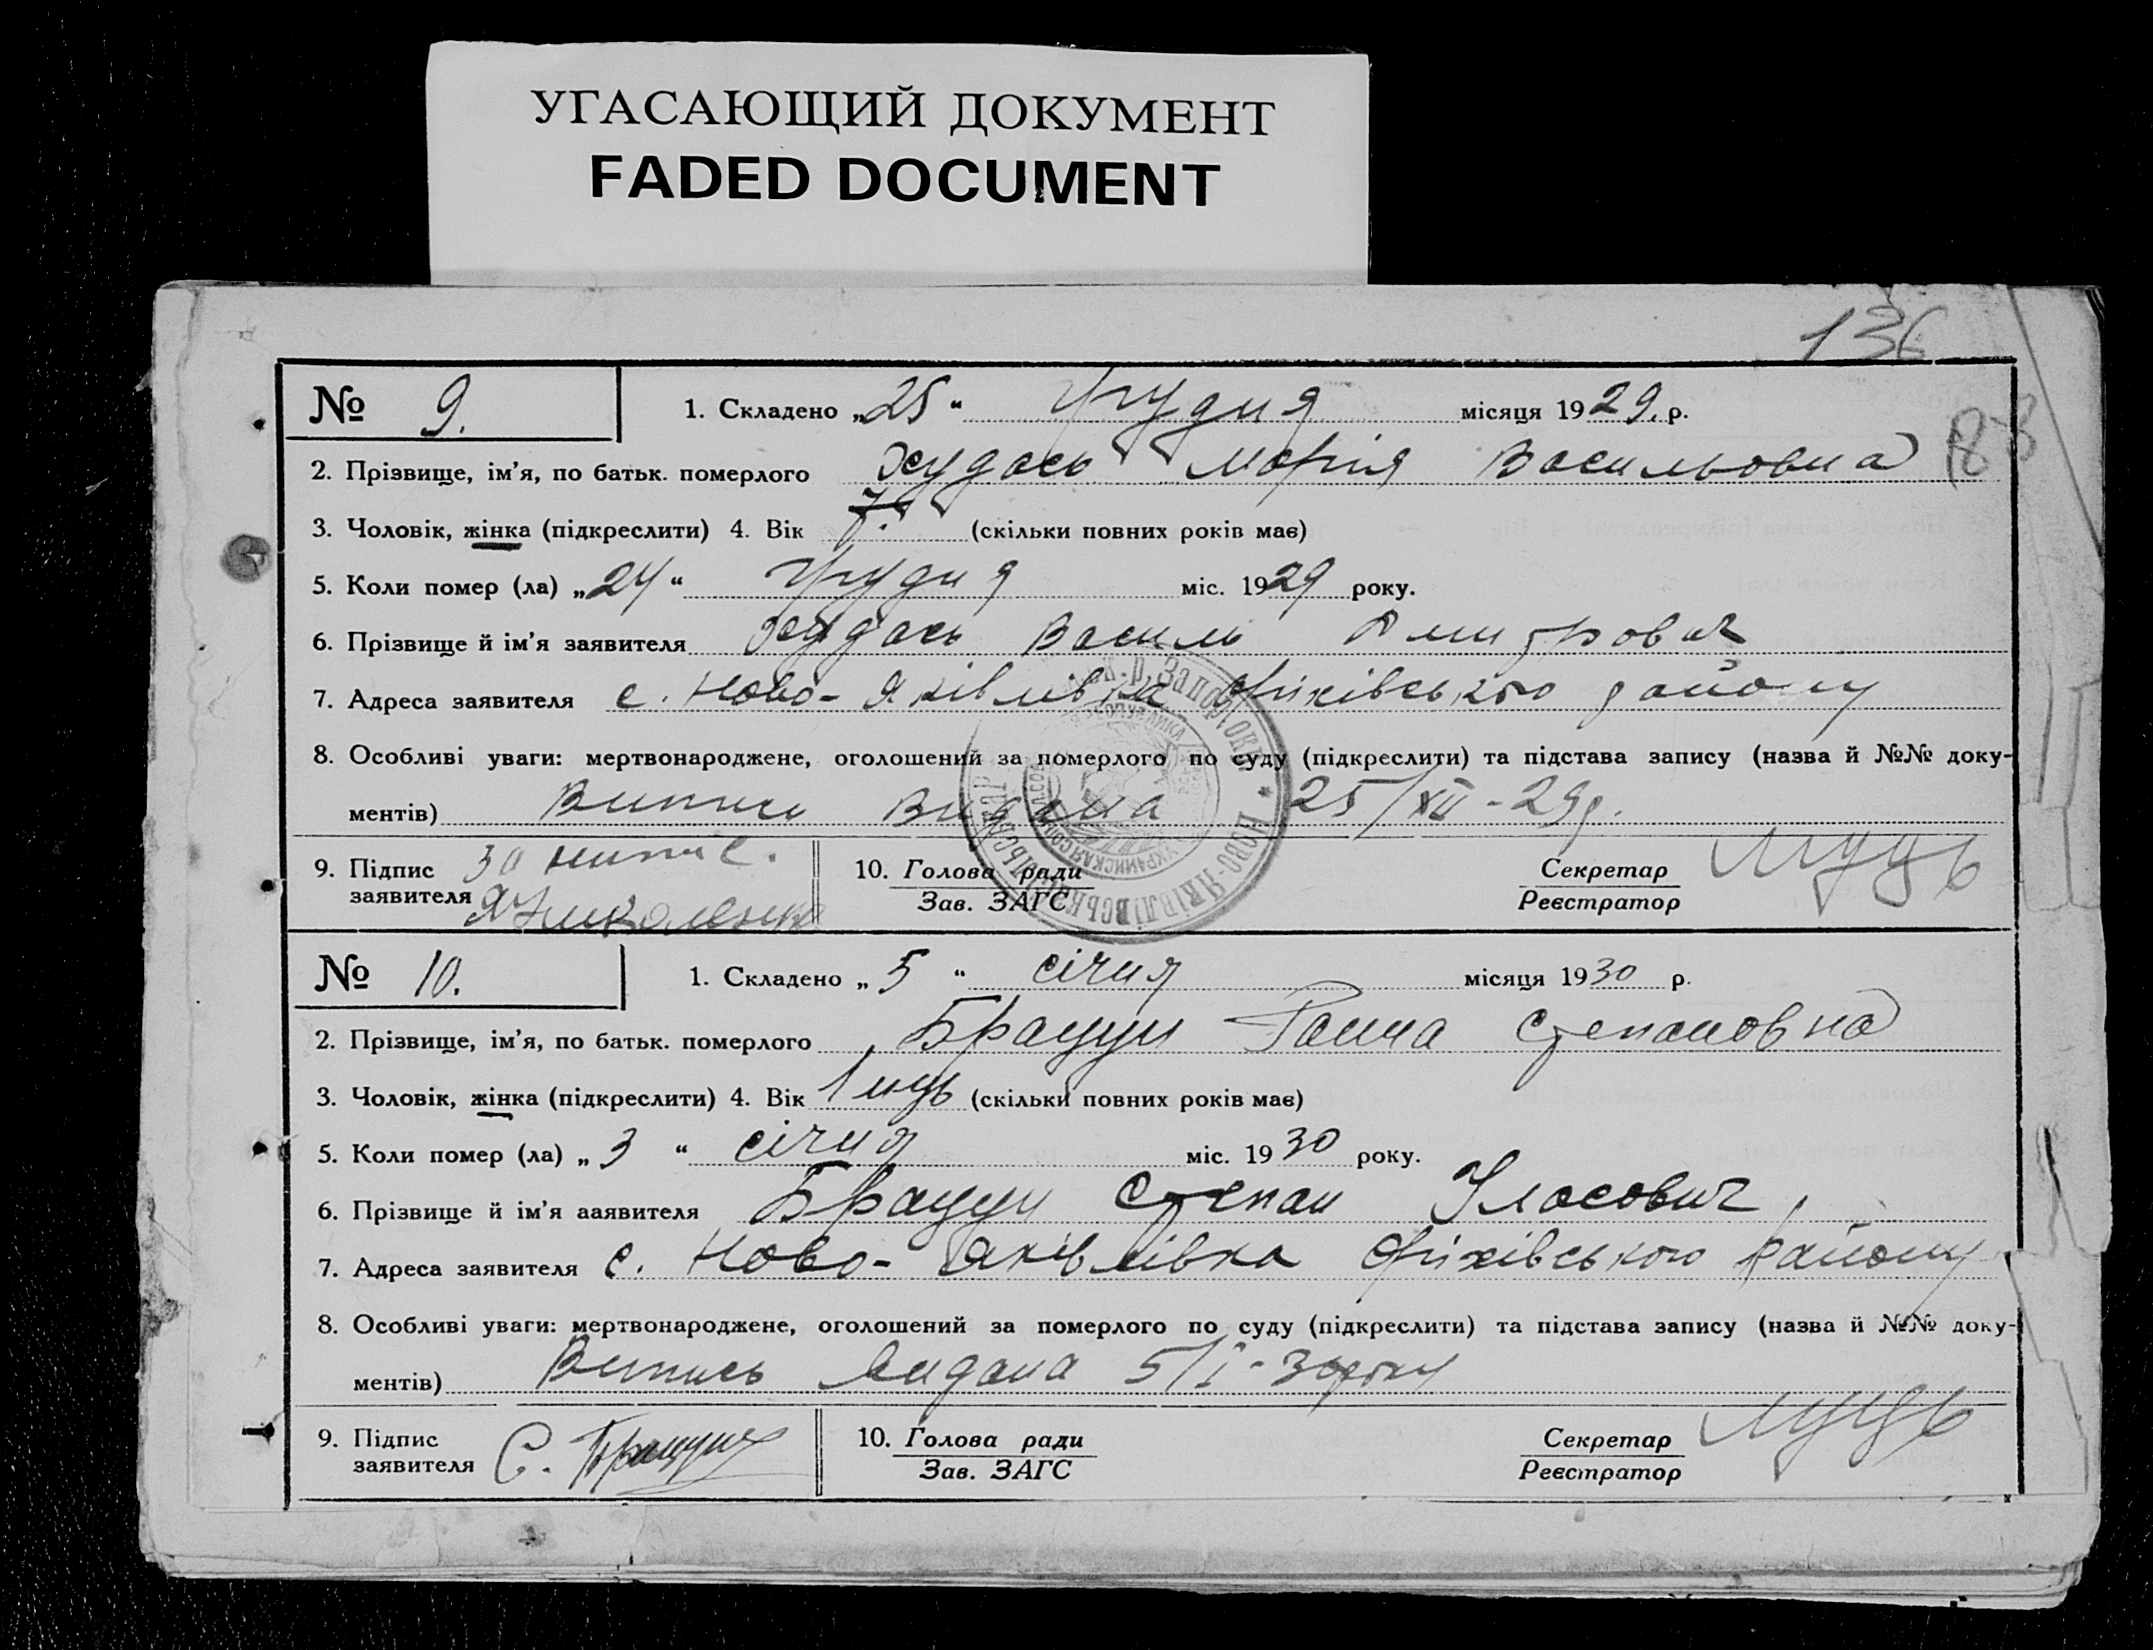 УГАСАЮЩИЙ ДОКУМЕНТ
FADED DOCUMENT
136
№ 9. 1. Складено „25“ грудня місяця 1929. р.
2. Прізвище, ім’я, по батьк. померлого Худась Марія Васильовна
3. Чоловік, жінка (підкреслити) 4. Вік 7. (скільки повних років має)
5. Коли помер (ла) „24“ грудня міс. 1929 року.
6. Прізвище й ім’я заявителя Худась Василь Дмитрович
7. Адреса заявителя с. Ново-Яківлівка Оріхівського району
8. Особливі уваги: мертвонароджене, оголошений за померлого по суду (підкреслити) та підстава запису (назва й №№ доку-
ментів) Випись видана 25/XII-29р.
9. Підпис
заявителя
10. Голова ради
Зав. ЗАГС
Секретар
Реєстратор
№ 10. 1. Складено „5“ січня місяця 1930 р.
2. Прізвище, ім’я, по батьк. померлого Ганна Степановна
3. Чоловік, жінка (підкреслити) 4. Вік 1 (скільки повних років має)
5. Коли помер (ла) „3“ січня міс. 1930 року.
6. Прізвище й ім’я ааявителя Степан Уласович
7. Адреса заявителя с. Ново-Яківлівка Оріхівського району
8. Особливі уваги: мертвонароджене, оголошений за померлого по суду (підкреслити) та підстава запису (назва й №№ доку-
ментів) Випись видана 5/I-30року
9. Підпис
заявителя С.
10. Голова ради
Зав. ЗАГС
Секретар
Реєстратор